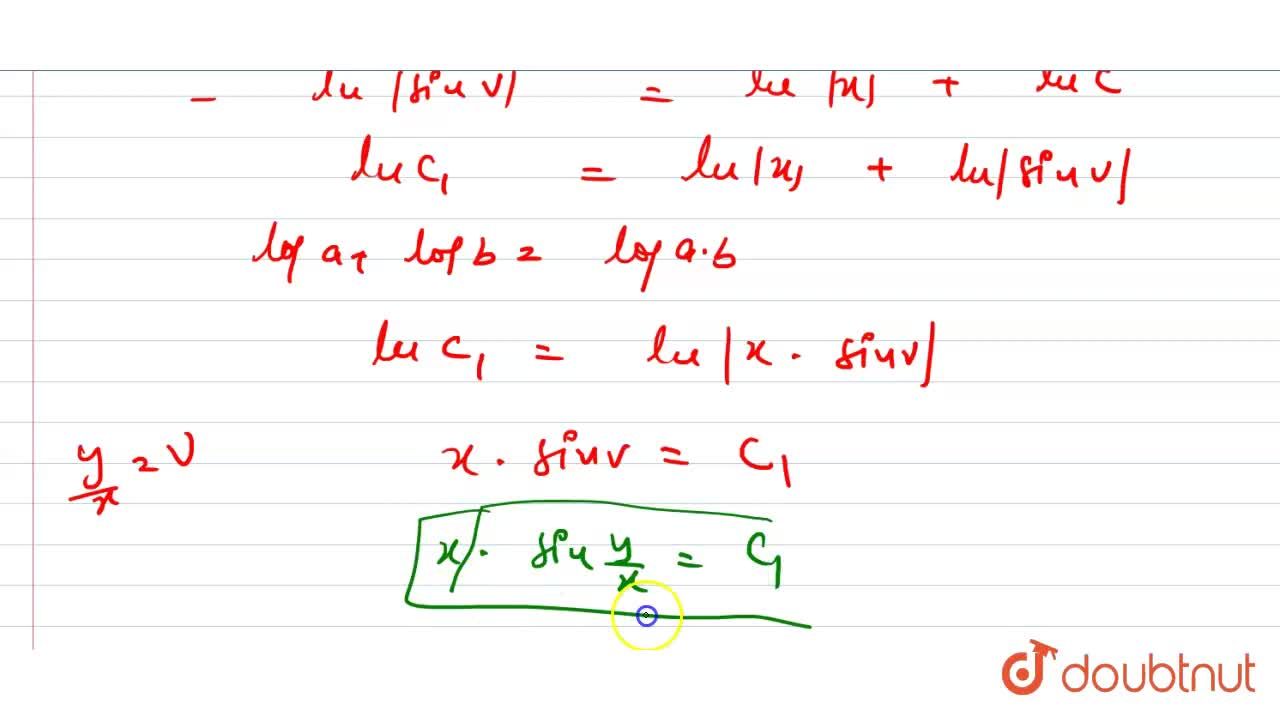 - ln |sin v| = ln |x| + ln C
ln C₁ = ln |x| + ln |sin v|
log a + log b = log a.b
ln C₁ = ln |x . sin v|
y/x = v
x . sin v = C₁
x . sin y/x = C₁
doubtnut